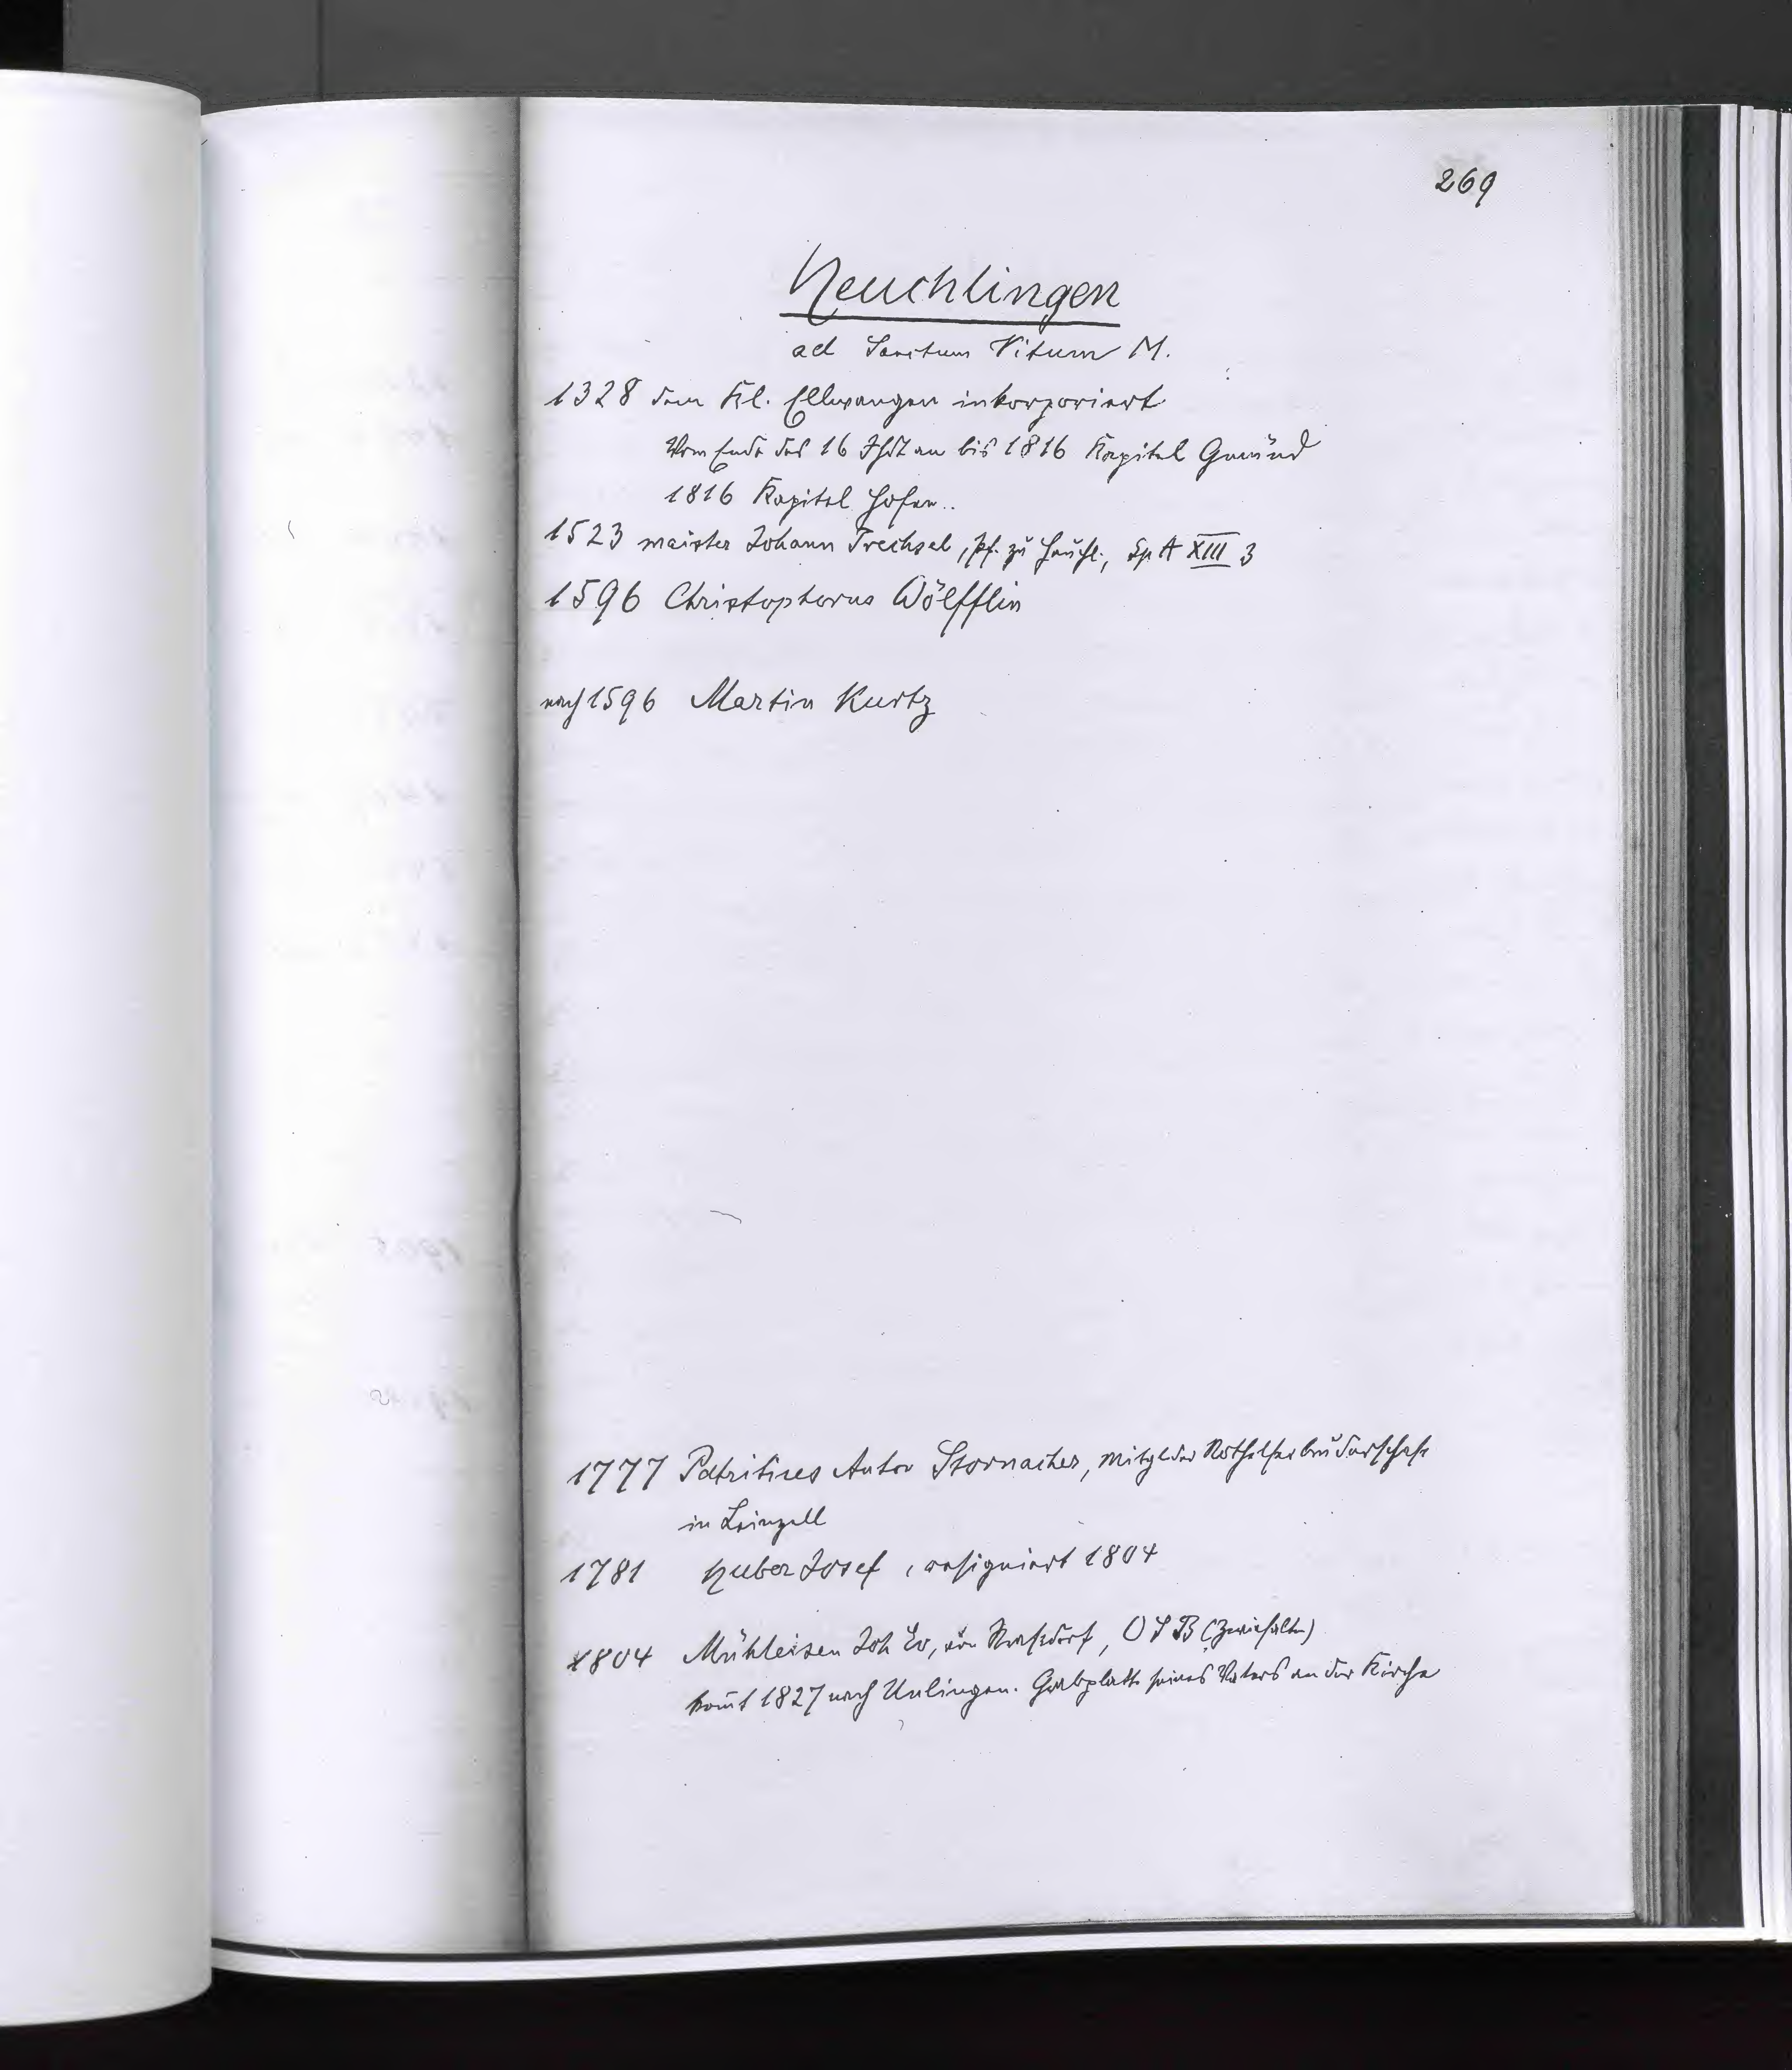 269
Heuchlingen
ad Sanctum Vitum M.
1328 dem Kl. Ellwangen inkorporiert
Vom Ende des 16 Jhdt an bis 1816 Kapitel Gmünd
1816 Kapitel Hofen..
1523 maister Johann Trechsel, Pf. zu Heuchl., Sp A XIII 3
1596 Christophorus Wölfflin
nach 1596 Martin Kurtz
1777 Patritius Anton Stornacher, Mitgl der Nothelferbruderschaft
in Leinzell
1781 Huber Josef, resigniert 1804
1804 Mühleisen Joh Ev, von Straßdorf, OSB (Zwiefalten)
kom̄t 1827 nach Unlingen. Grabplatte seines Vaters an der Kirche